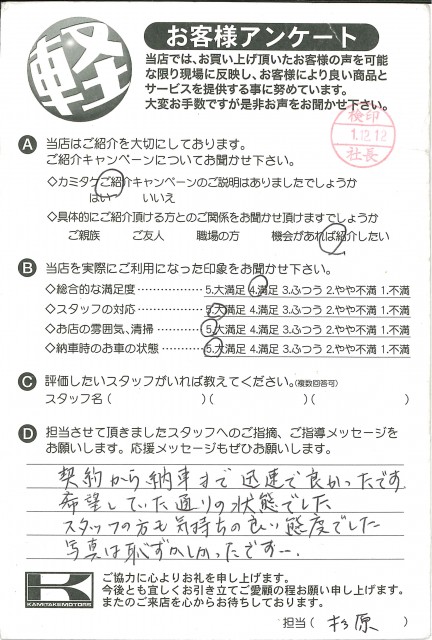 軽
お客様アンケート
当店では、お買い上げ頂いたお客様の声を可能
な限り現場に反映し、お客様により良い商品と
サービスを提供する事に努めています。
大変お手数ですが是非お声をお聞かせ下さい。
検印
1.12.12
社長
A 当店はご紹介を大切にしております。
ご紹介キャンペーンについてお聞かせ下さい。
◇カミタケご紹介キャンペーンのご説明はありましたでしょうか
はい いいえ
◇具体的にご紹介頂ける方とのご関係をお聞かせ頂けますでしょうか
ご親族 ご友人 職場の方 機会があれば紹介したい
B 当店を実際にご利用になった印象をお聞かせ下さい。
◇総合的な満足度 5.大満足 4.満足 3.ふつう 2.やや不満 1.不満
◇スタッフの対応 5.大満足 4.満足 3.ふつう 2.やや不満 1.不満
◇お店の雰囲気、清掃 5.大満足 4.満足 3.ふつう 2.やや不満 1.不満
◇納車時のお車の状態 5.大満足 4.満足 3.ふつう 2.やや不満 1.不満
C 評価したいスタッフがいれば教えてください。(複数回答可)
スタッフ名( )( )( )
D 担当させて頂きましたスタッフへのご指摘、ご指導メッセージを
お願いします。応援メッセージもぜひお願いします。
契約から納車まで迅速で良かったです
希望していた通りの状態でした
スタッフの方も気持ちの良い態度でした
写真は恥ずかしかったですー.
KAMITAKE MOTORS
ご協力に心よりお礼を申し上げます。
今後とも宜しくお引き立てご愛顧の程お願い申し上げます。
またのご来店を心からお待ちしております。
担当(杉原)